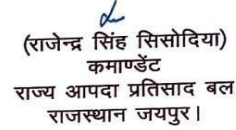 (राजेन्द्र सिंह सिसोदिया)
कमाण्डेंट
राज्य आपदा प्रतिसाद बल
राजस्थान जयपुर।